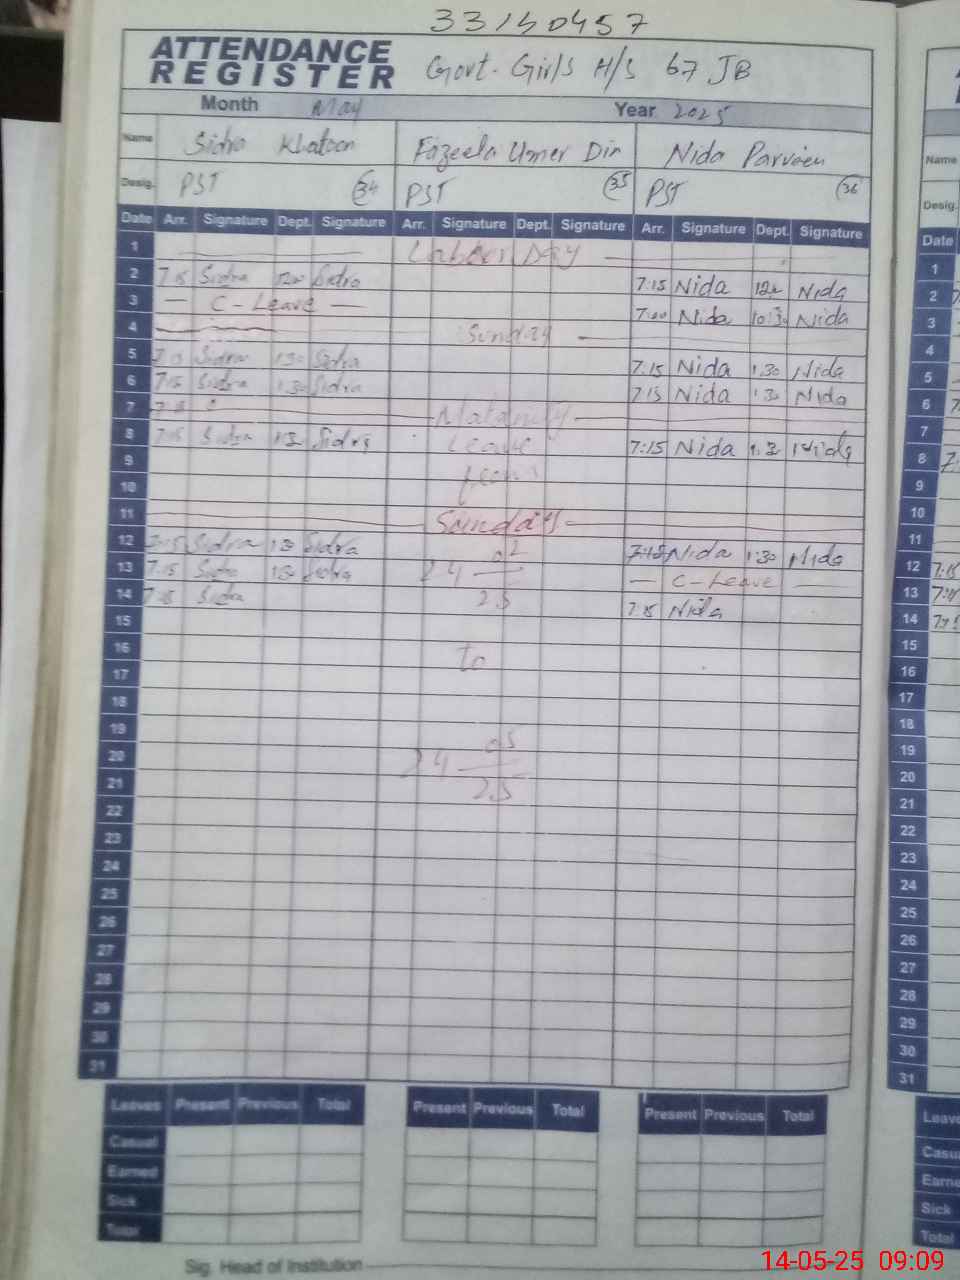 33130457
ATTENDANCE
REGISTER
Govt. Girls H/S 67 JB
Month May Year 2025
Name Sidra Khatoon Fazeela Umer Din Nida Parveen
Desig. PST 34 PST 35 PST 36
Date Arr. Signature Dept. Signature Arr. Signature Dept. Signature Arr. Signature Dept. Signature
1 Labour Day
2 7:15 Sidra 12:00 Sidra 7:15 Nida Nida
3 C-Leave 7:00 Nida 10:30 Nida
4 Sunday
5 7:15 Sidra 1:30 Sidra 7:15 Nida 1:30 Nida
6 7:15 Sidra 1:30 Sidra 7:15 Nida 1:30 Nida
7 Matarnity
8 7:15 Sidra 1:3 Sidra Leave 7:15 Nida 1:3 Nida
9 from
10
11 Sunday
12 7:15 Sidra 1:3 Sidra 02 7:15 Nida 1:30 Nida
13 7:15 Sidra 1:30 Sidra 24 C-Leave
14 7:15 Sidra 25 7:15 Nida
15
16 To
17
18
19
20 24 05
21 25
22
23
24
25
26
27
28
29
30
31
Leaves Present Previous Total Present Previous Total Present Previous Total
Casual
Earned
Sick
Total
Sig. Head of Institution
Name
Desig.
Date
1
2
3
4
5
6
7
8
9
10
11
12 7:15
13
14
15
16
17
18
19
20
21
22
23
24
25
26
27
28
29
30
31
Leave
Casu
Earne
Sick
Total
14-05-25 09:09